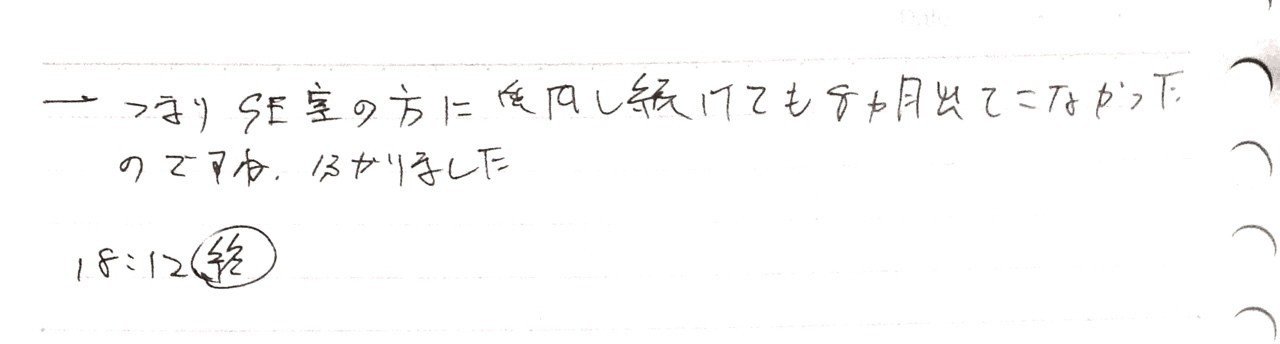 → つまりSE室の方に質問し続けても8ヵ月出てこなかった
のですね. 分かりました
18:12 終